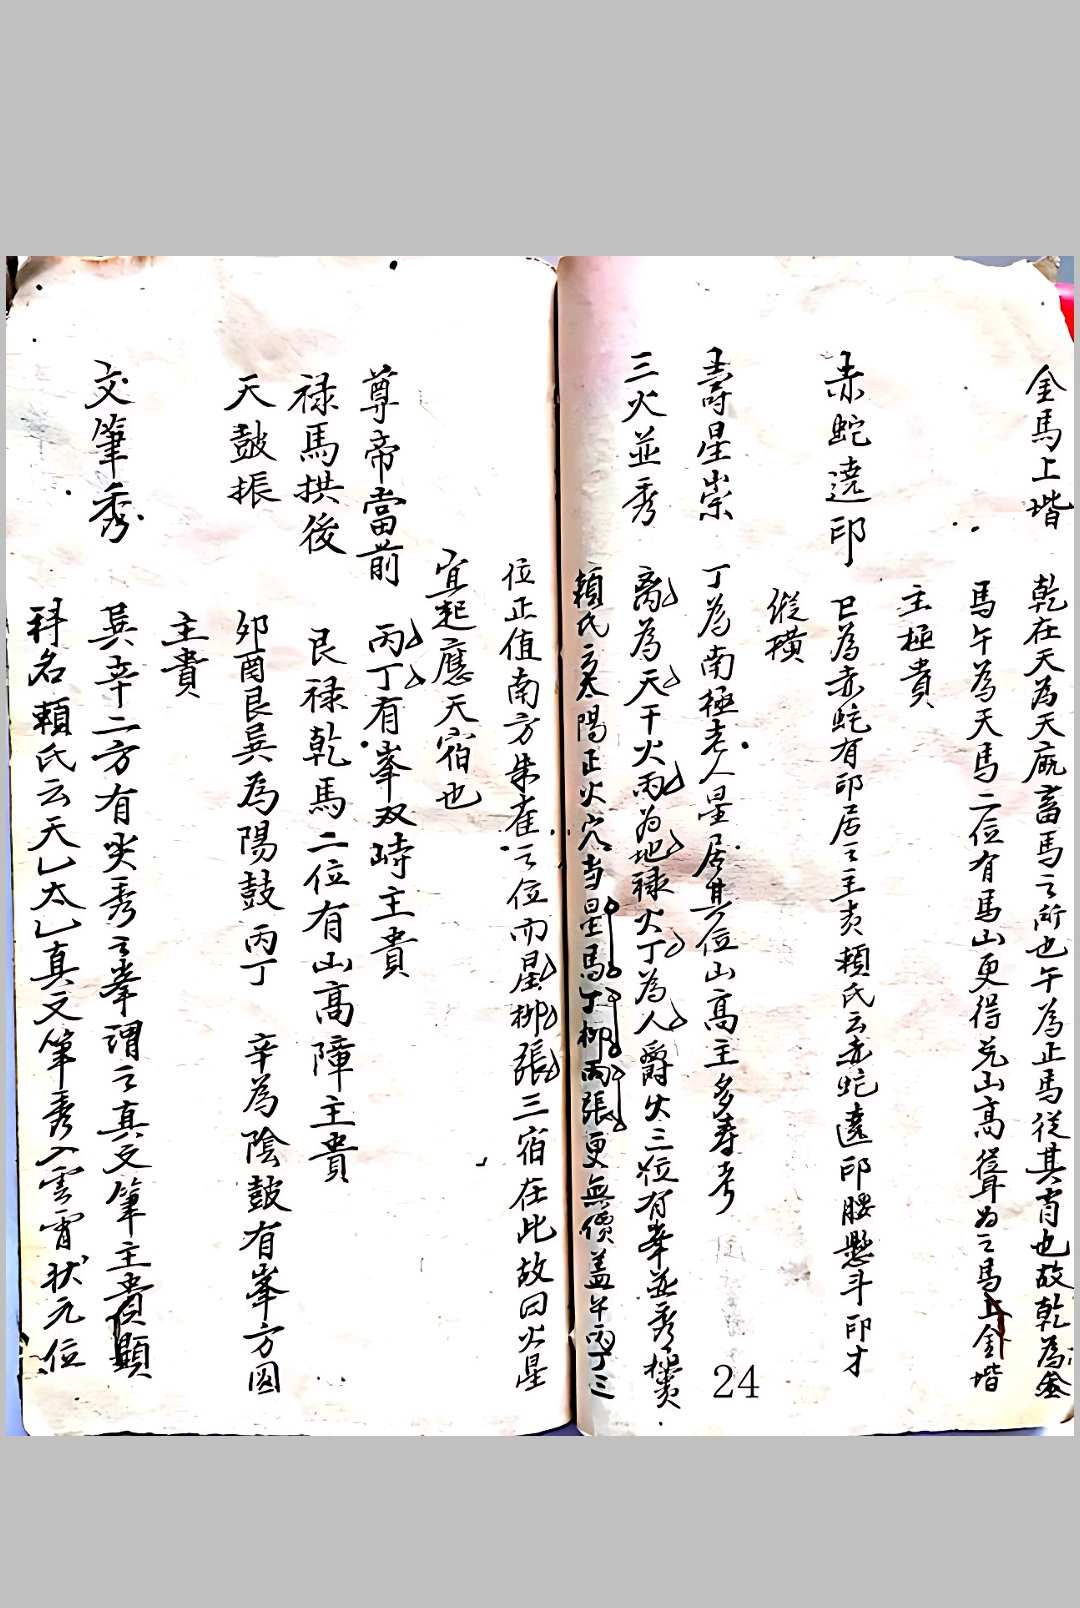 金馬上堦
乾在天為天廐畜馬之所也午為正馬從其肖也故乾為金
馬午為天馬二位有馬山更得兑山高聳為之馬上金堦
主極貴
赤蛇遶印
巳為赤蛇有印居之主貴頼氏云赤蛇遶印腰懸斗印才
縱璜
壽星崇
丁為南極老人星居其位山高主多壽考
三火並秀
离為天干火丙為地祿火丁為人爵火三位有峯並秀極貴
頼氏云太陽正火穴当星馬丁柳丙張更無價盖午丙丁三
24
位正值南方朱雀之位而星柳張三宿在此故曰火星
宜起應天宿也
尊帝當前
丙丁有峯双峙主貴
禄馬拱後
艮禄乾馬二位有山高障主貴
天鼓振
卯酉艮巽為陽鼓丙丁 辛為陰鼓有峯方図
主貴
文筆秀
巽辛二方有尖秀之峯謂之真文筆主貴顯
科名頼氏云天乙太乙真文筆秀入雲霄状元位